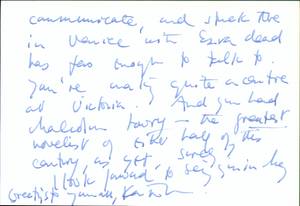 communicate, and stuck there
in Venice with Ezra dead
has few enough to talk to.
You're making quite a centre
at Victoria. And you had
Malcolm Lowry — the greatest
novelist of either half of this
century, as yet, surely.
I look forward to seeing in
Greetings to you all,